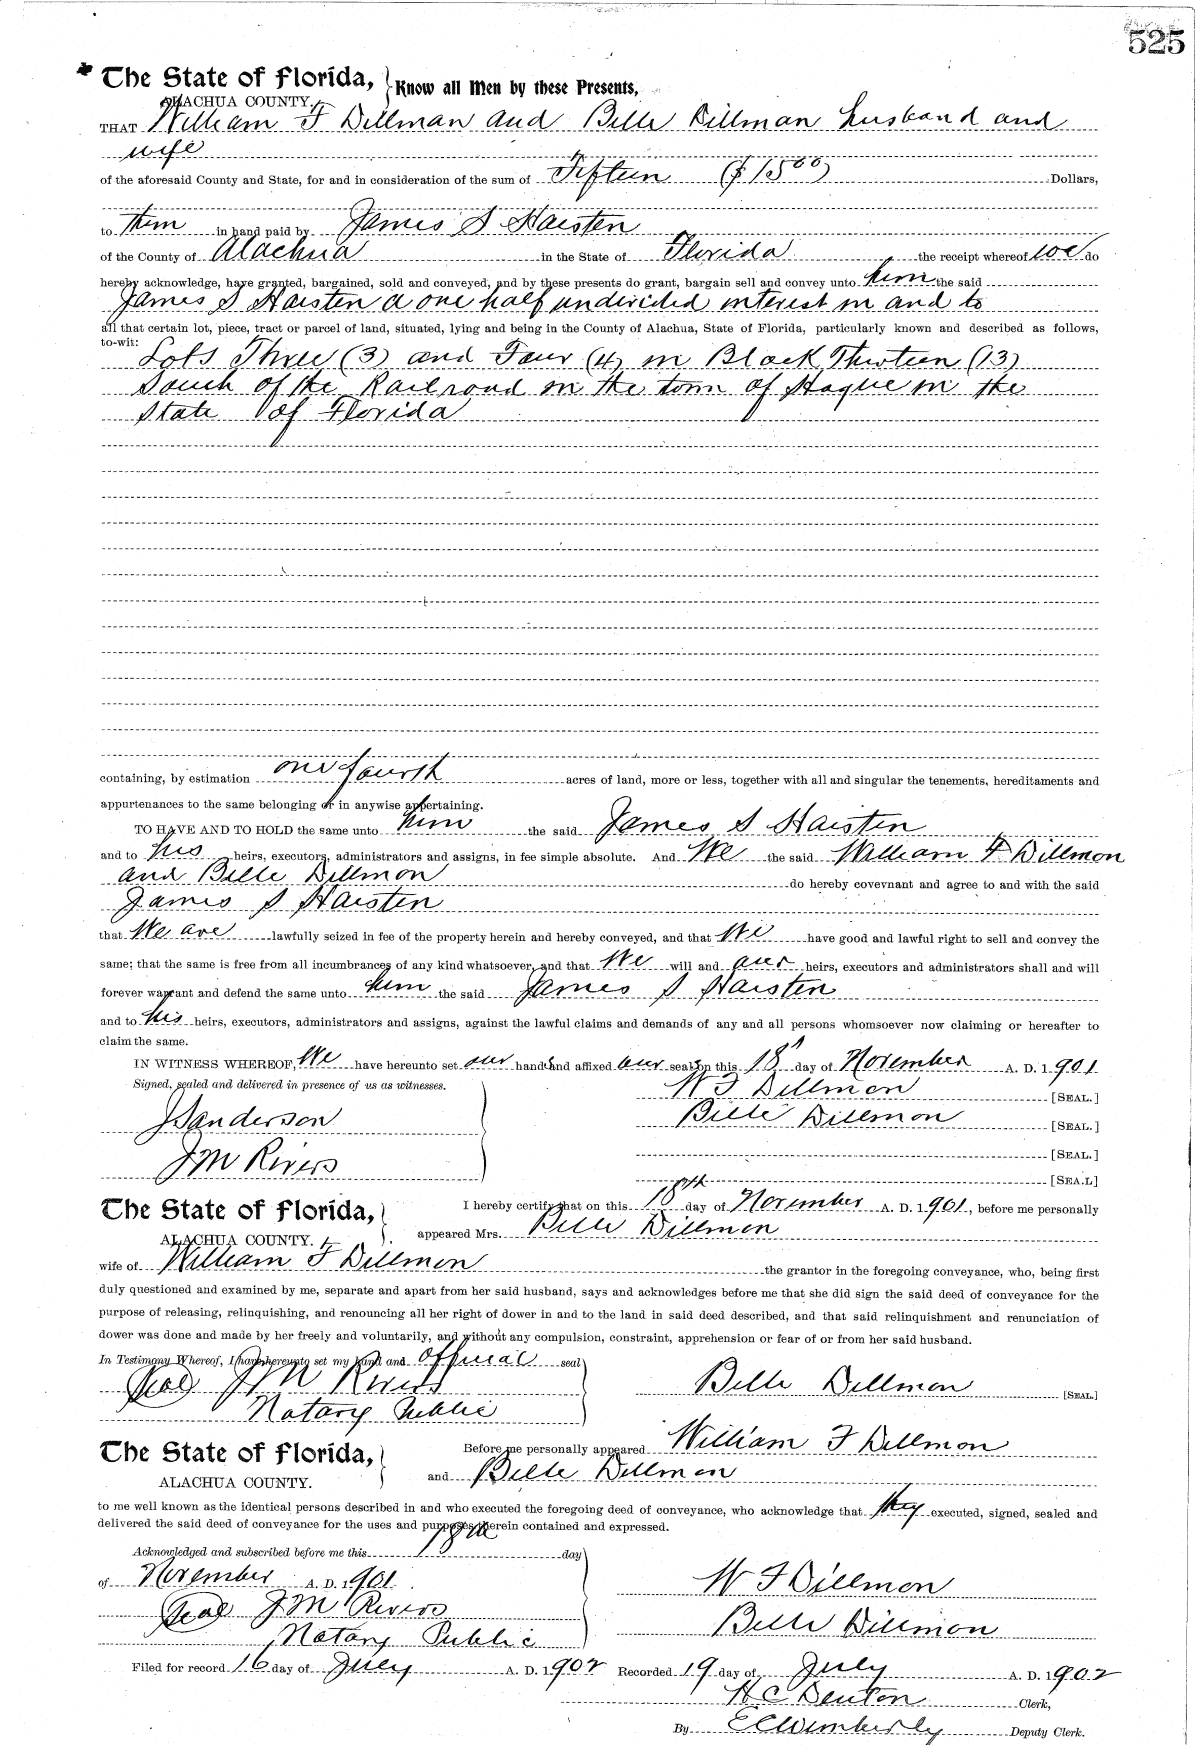 525
The State of Florida, Know all Men by these Presents,
ALACHUA COUNTY.
THAT William F Dillman and Belle Dillman husband and
wife
of the aforesaid County and State, for and in consideration of the sum of Fifteen ($15 00) Dollars,
to them in hand paid by James S Haisten
of the County of Alachua in the State of Florida the receipt whereof we do
hereby acknowledge, have granted, bargained, sold and conveyed, and by these presents do grant, bargain sell and convey unto him the said
James S Haisten a one half undivided interest in and to
all that certain lot, piece, tract or parcel of land, situated, lying and being in the County of Alachua, State of Florida, particularly known and described as follows,
to-wit:
Lots Three (3) and Four (4) in Block Thirteen (13)
South of the Railroad in the town of Hague in the
State of Florida
containing, by estimation one fourth acres of land, more or less, together with all and singular the tenements, hereditaments and
appurtenances to the same belonging or in anywise appertaining.
TO HAVE AND TO HOLD the same unto him the said James S Haisten
and to his heirs, executors, administrators and assigns, in fee simple absolute. And We the said William F Dillmon
and Belle Dillmon do hereby covevnant and agree to and with the said
James S Haisten
that We are lawfully seized in fee of the property herein and hereby conveyed, and that We have good and lawful right to sell and convey the
same; that the same is free from all incumbrances of any kind whatsoever, and that We will and our heirs, executors and administrators shall and will
forever warrant and defend the same unto him the said James S Haisten
and to his heirs, executors, administrators and assigns, against the lawful claims and demands of any and all persons whomsoever now claiming or hereafter to
claim the same.
IN WITNESS WHEREOF, We have hereunto set our hands and affixed our seals on this 18th day of November A. D. 1901
Signed, sealed and delivered in presence of us as witnesses.
W F Dillmon [SEAL.]
J Sanderson Belle Dillmon [SEAL.]
J M Rivers [SEAL.]
[SEA.L]
The State of Florida, I hereby certify that on this 18th day of November A. D. 1901, before me personally
ALACHUA COUNTY. appeared Mrs. Belle Dillmon
wife of William F Dillmon the grantor in the foregoing conveyance, who, being first
duly questioned and examined by me, separate and apart from her said husband, says and acknowledges before me that she did sign the said deed of conveyance for the
purpose of releasing, relinquishing, and renouncing all her right of dower in and to the land in said deed described, and that said relinquishment and renunciation of
dower was done and made by her freely and voluntarily, and without any compulsion, constraint, apprehension or fear of or from her said husband.
In Testimony Whereof, I have hereunto set my hand and official seal
Seal J M Rivers Belle Dillmon [SEAL.]
Notary Public
The State of Florida, Before me personally appeared William F Dillmon
ALACHUA COUNTY. and Belle Dillmon
to me well known as the identical persons described in and who executed the foregoing deed of conveyance, who acknowledge that they executed, signed, sealed and
delivered the said deed of conveyance for the uses and purposes therein contained and expressed.
Acknowledged and subscribed before me this 18th day
of November A. D. 1901. W F Dillmon
Seal J M Rivers Belle Dillmon
Notary Public
Filed for record 16 day of July A. D. 1902 Recorded 19 day of July A. D. 1902
H C Denton Clerk,
By E C Wimberly Deputy Clerk.